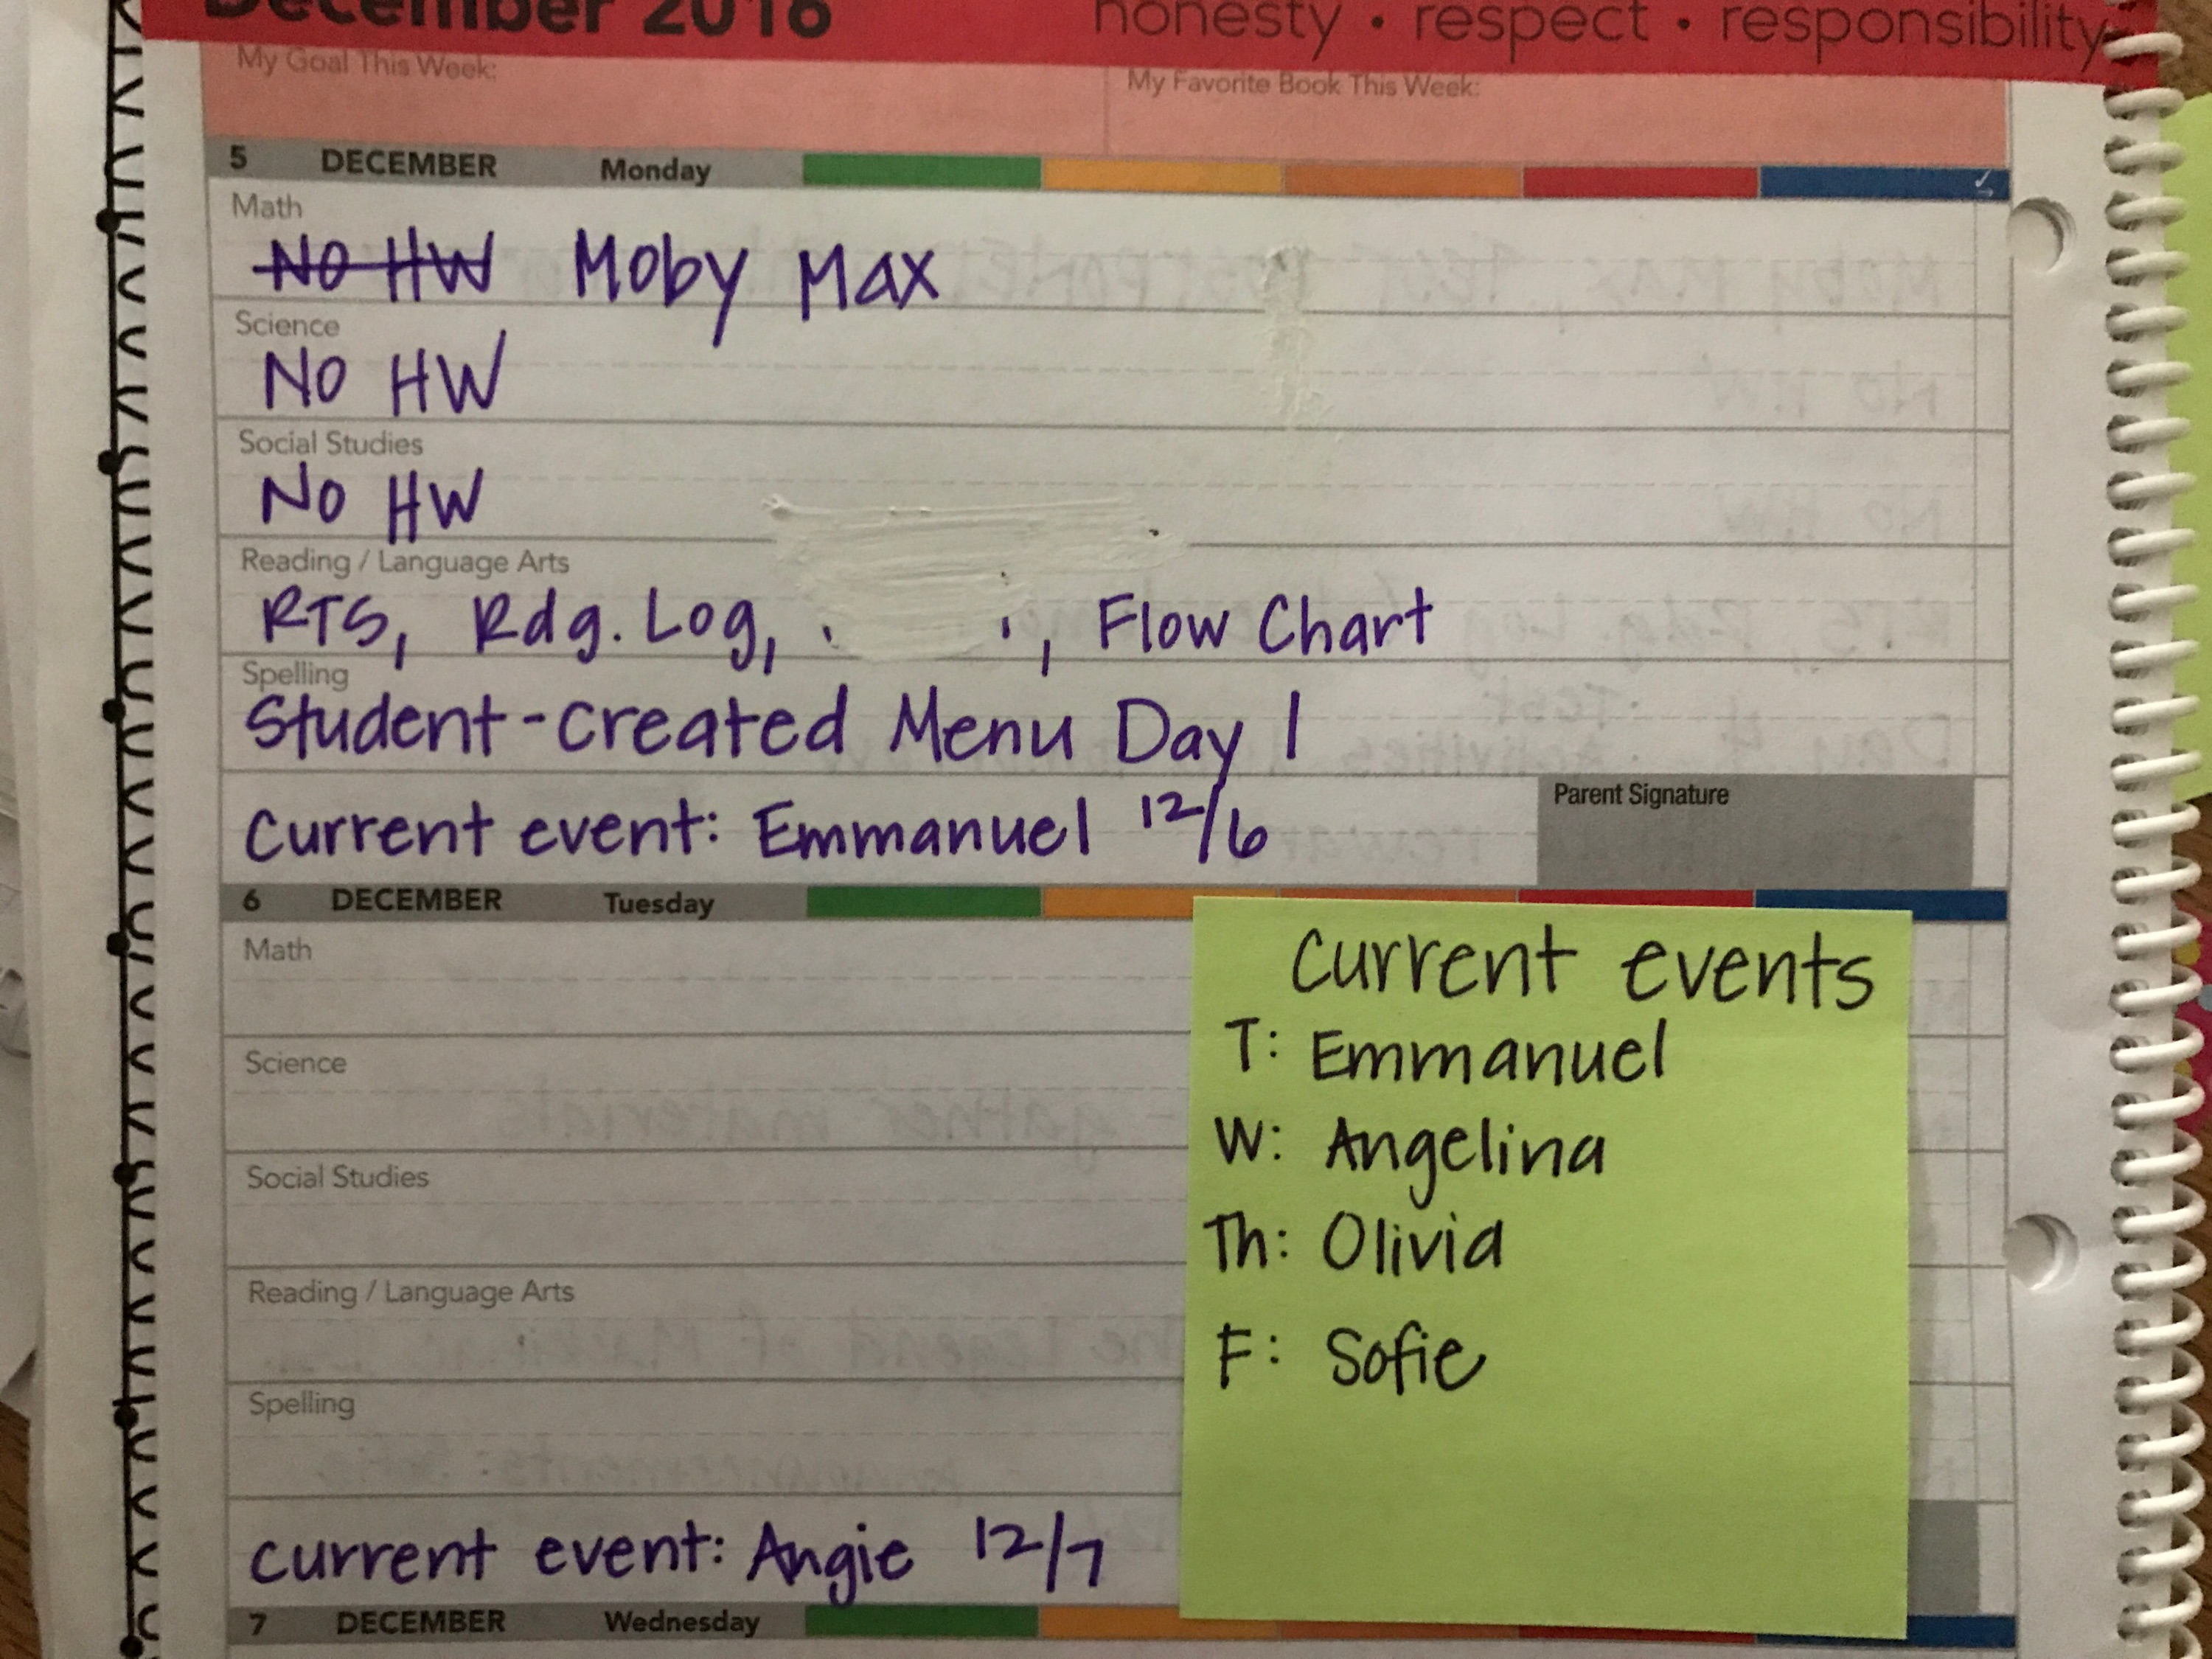 December 2016 honesty • respect • responsibility
My Goal This Week: My Favorite Book This Week:
5 DECEMBER Monday
Math
No HW Moby Max
Science
No HW
Social Studies
No HW
Reading / Language Arts
RTS, Rdg. Log, , Flow Chart
Spelling
Student-created Menu Day 1
Parent Signature
Current event: Emmanuel 12/6
6 DECEMBER Tuesday
Math
Science
Social Studies
Reading / Language Arts
Spelling
current event: Angie 12/7
Current events
T: Emmanuel
W: Angelina
Th: Olivia
F: Sofie
7 DECEMBER Wednesday